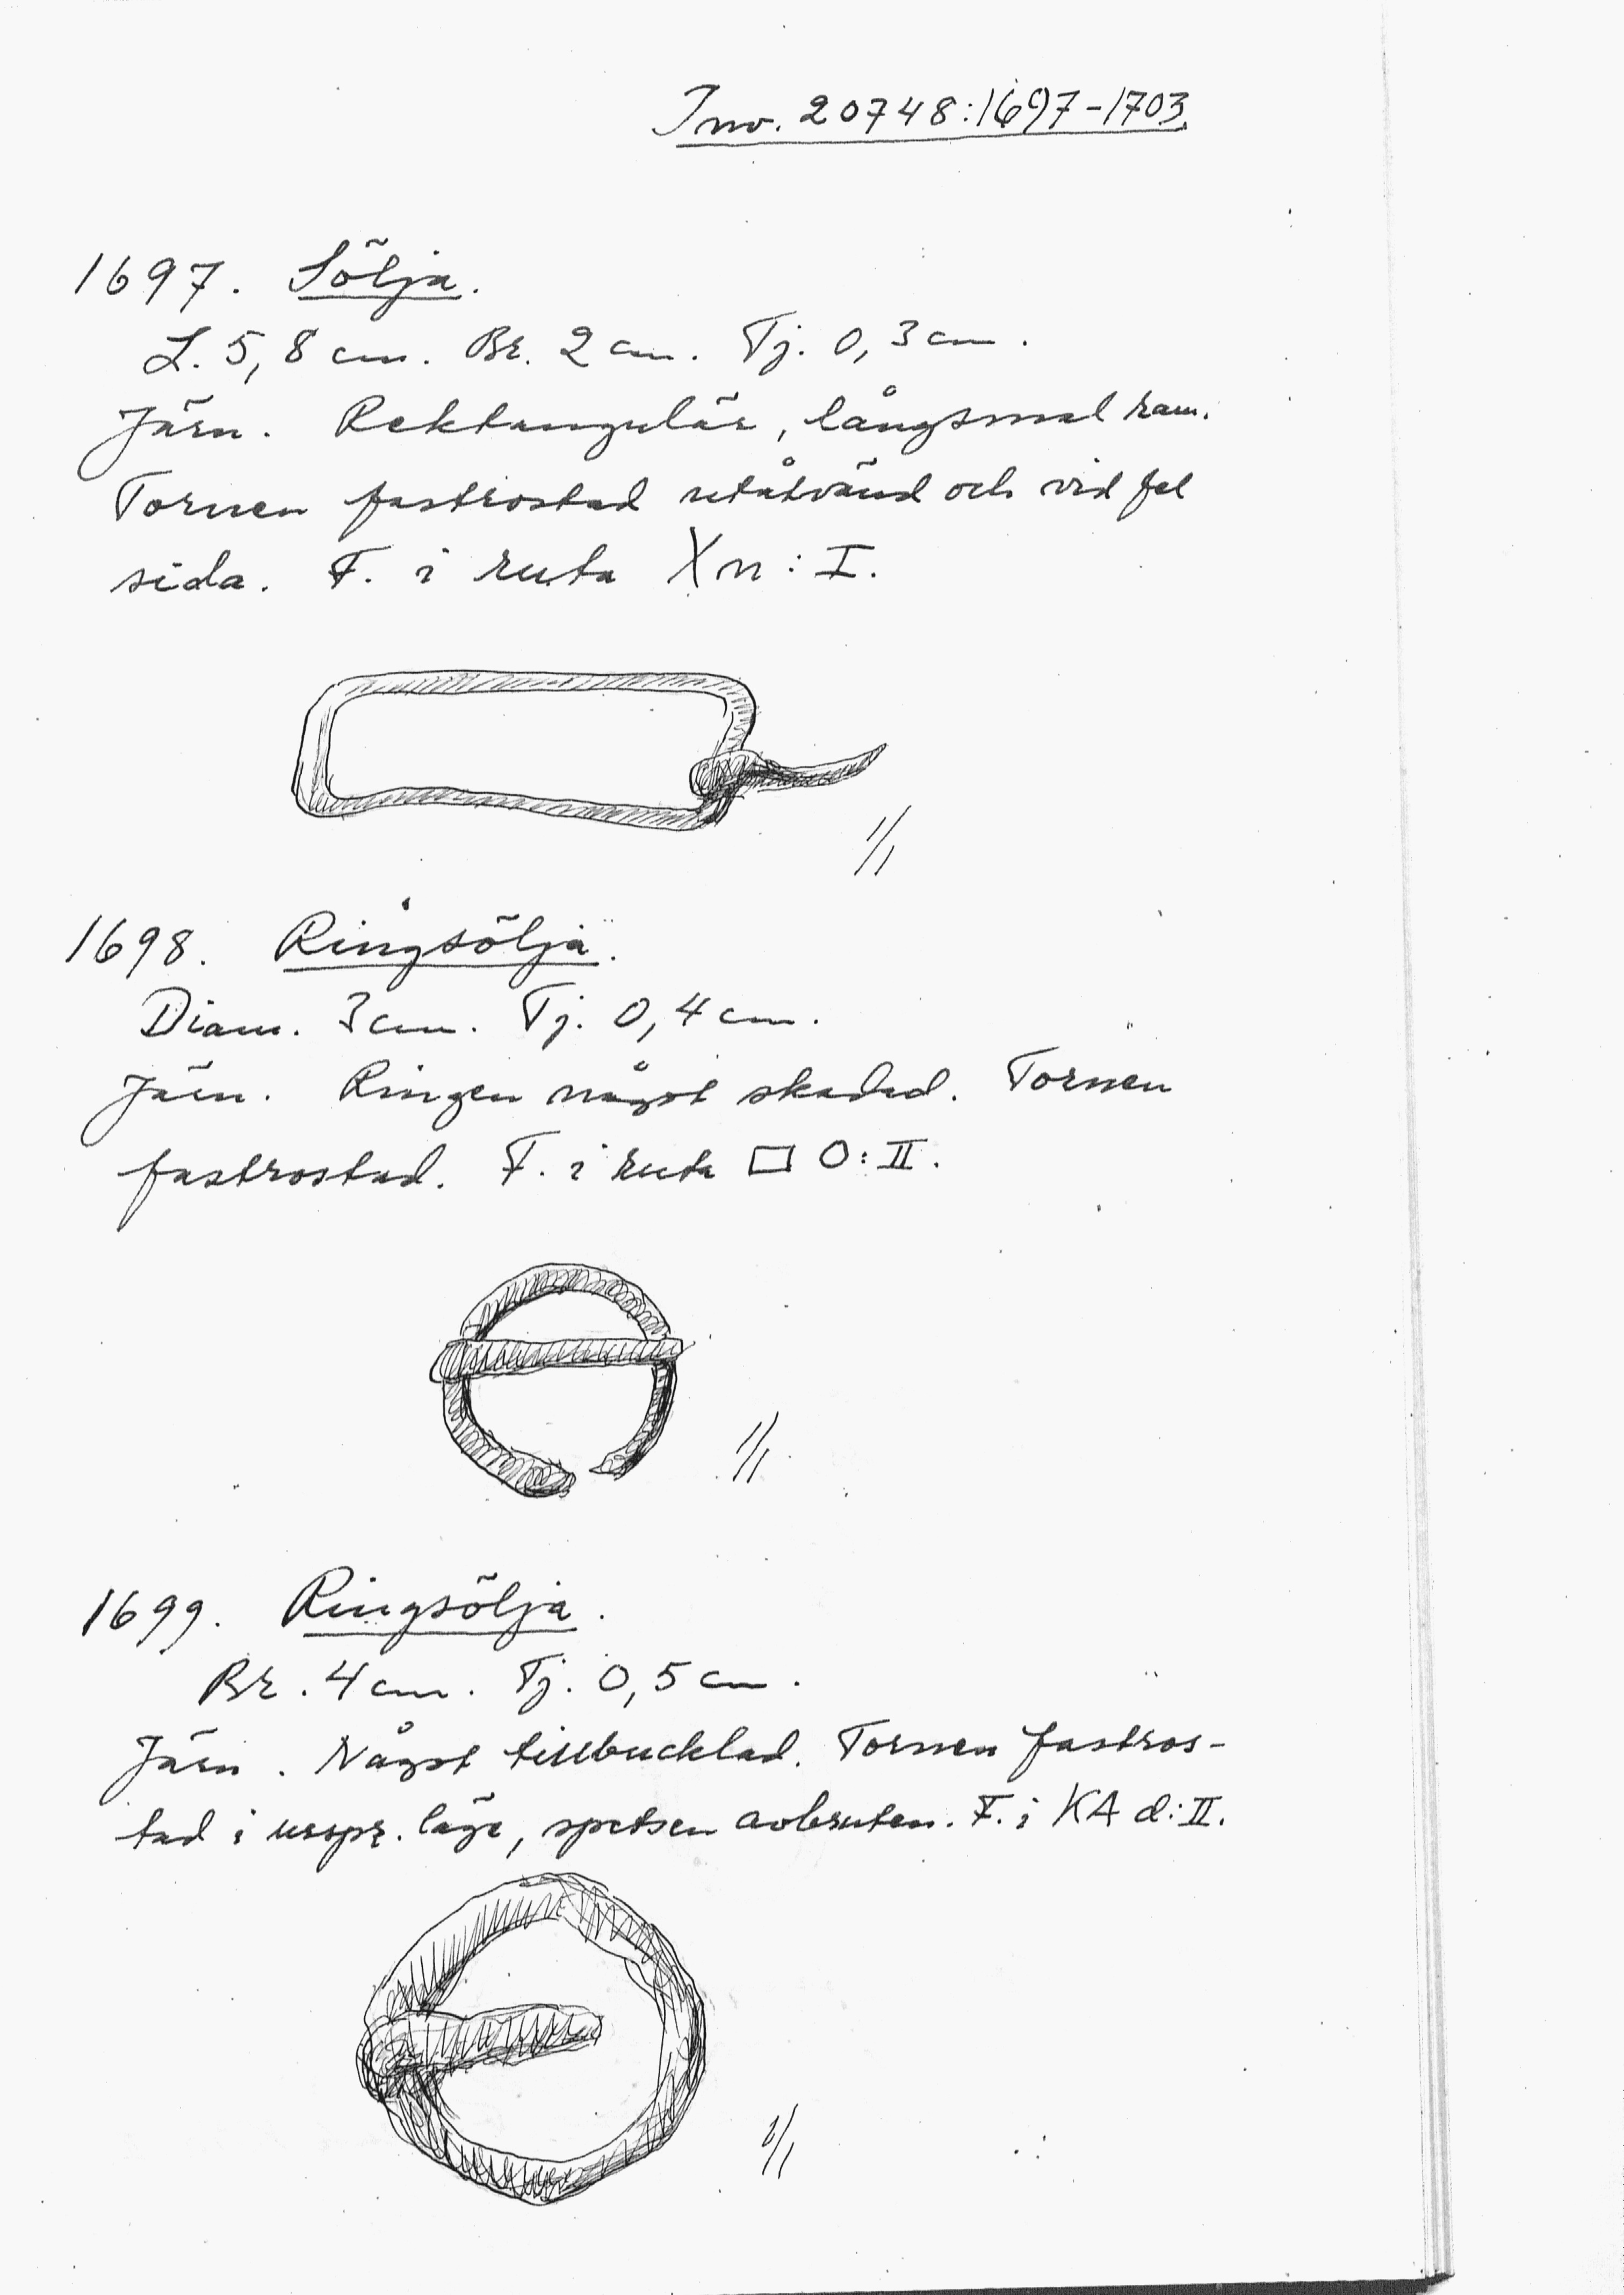 Inv. 20748:1697-1703.
1697. Sölja.
L. 5,8 cm. Br. 2 cm. Tj. 0,3 cm.
Järn. Rektangulär, långsmal ram.
Tornen fastrostad utåtvänd och vid fel
sida. F. i ruta X n: I.
1/1
1698. Ringsölja.
Diam. 3 cm. Tj. 0,4 cm.
Järn. Ringen något skadad. Tornen
fastrostad. F. i ruta □ O: II.
1/1
1699. Ringsölja.
Br. 4 cm. Tj. 0,5 cm.
Järn. Något tillbucklad. Tornen fastros-
tad i urspr. läge, spetsen avbruten. F. i KA d: II.
1/1